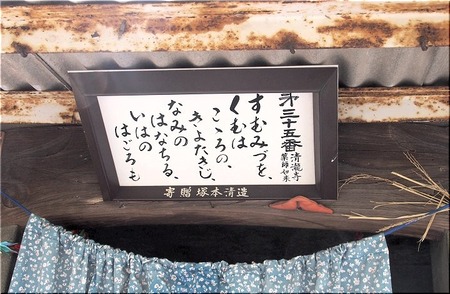 第三十五番
清瀧寺
薬師如来
すむみづを、
くむは
こゝろの、
きよたきじ、
なみの
はなちる、
いはの
はごろも
寄贈 塚本清造